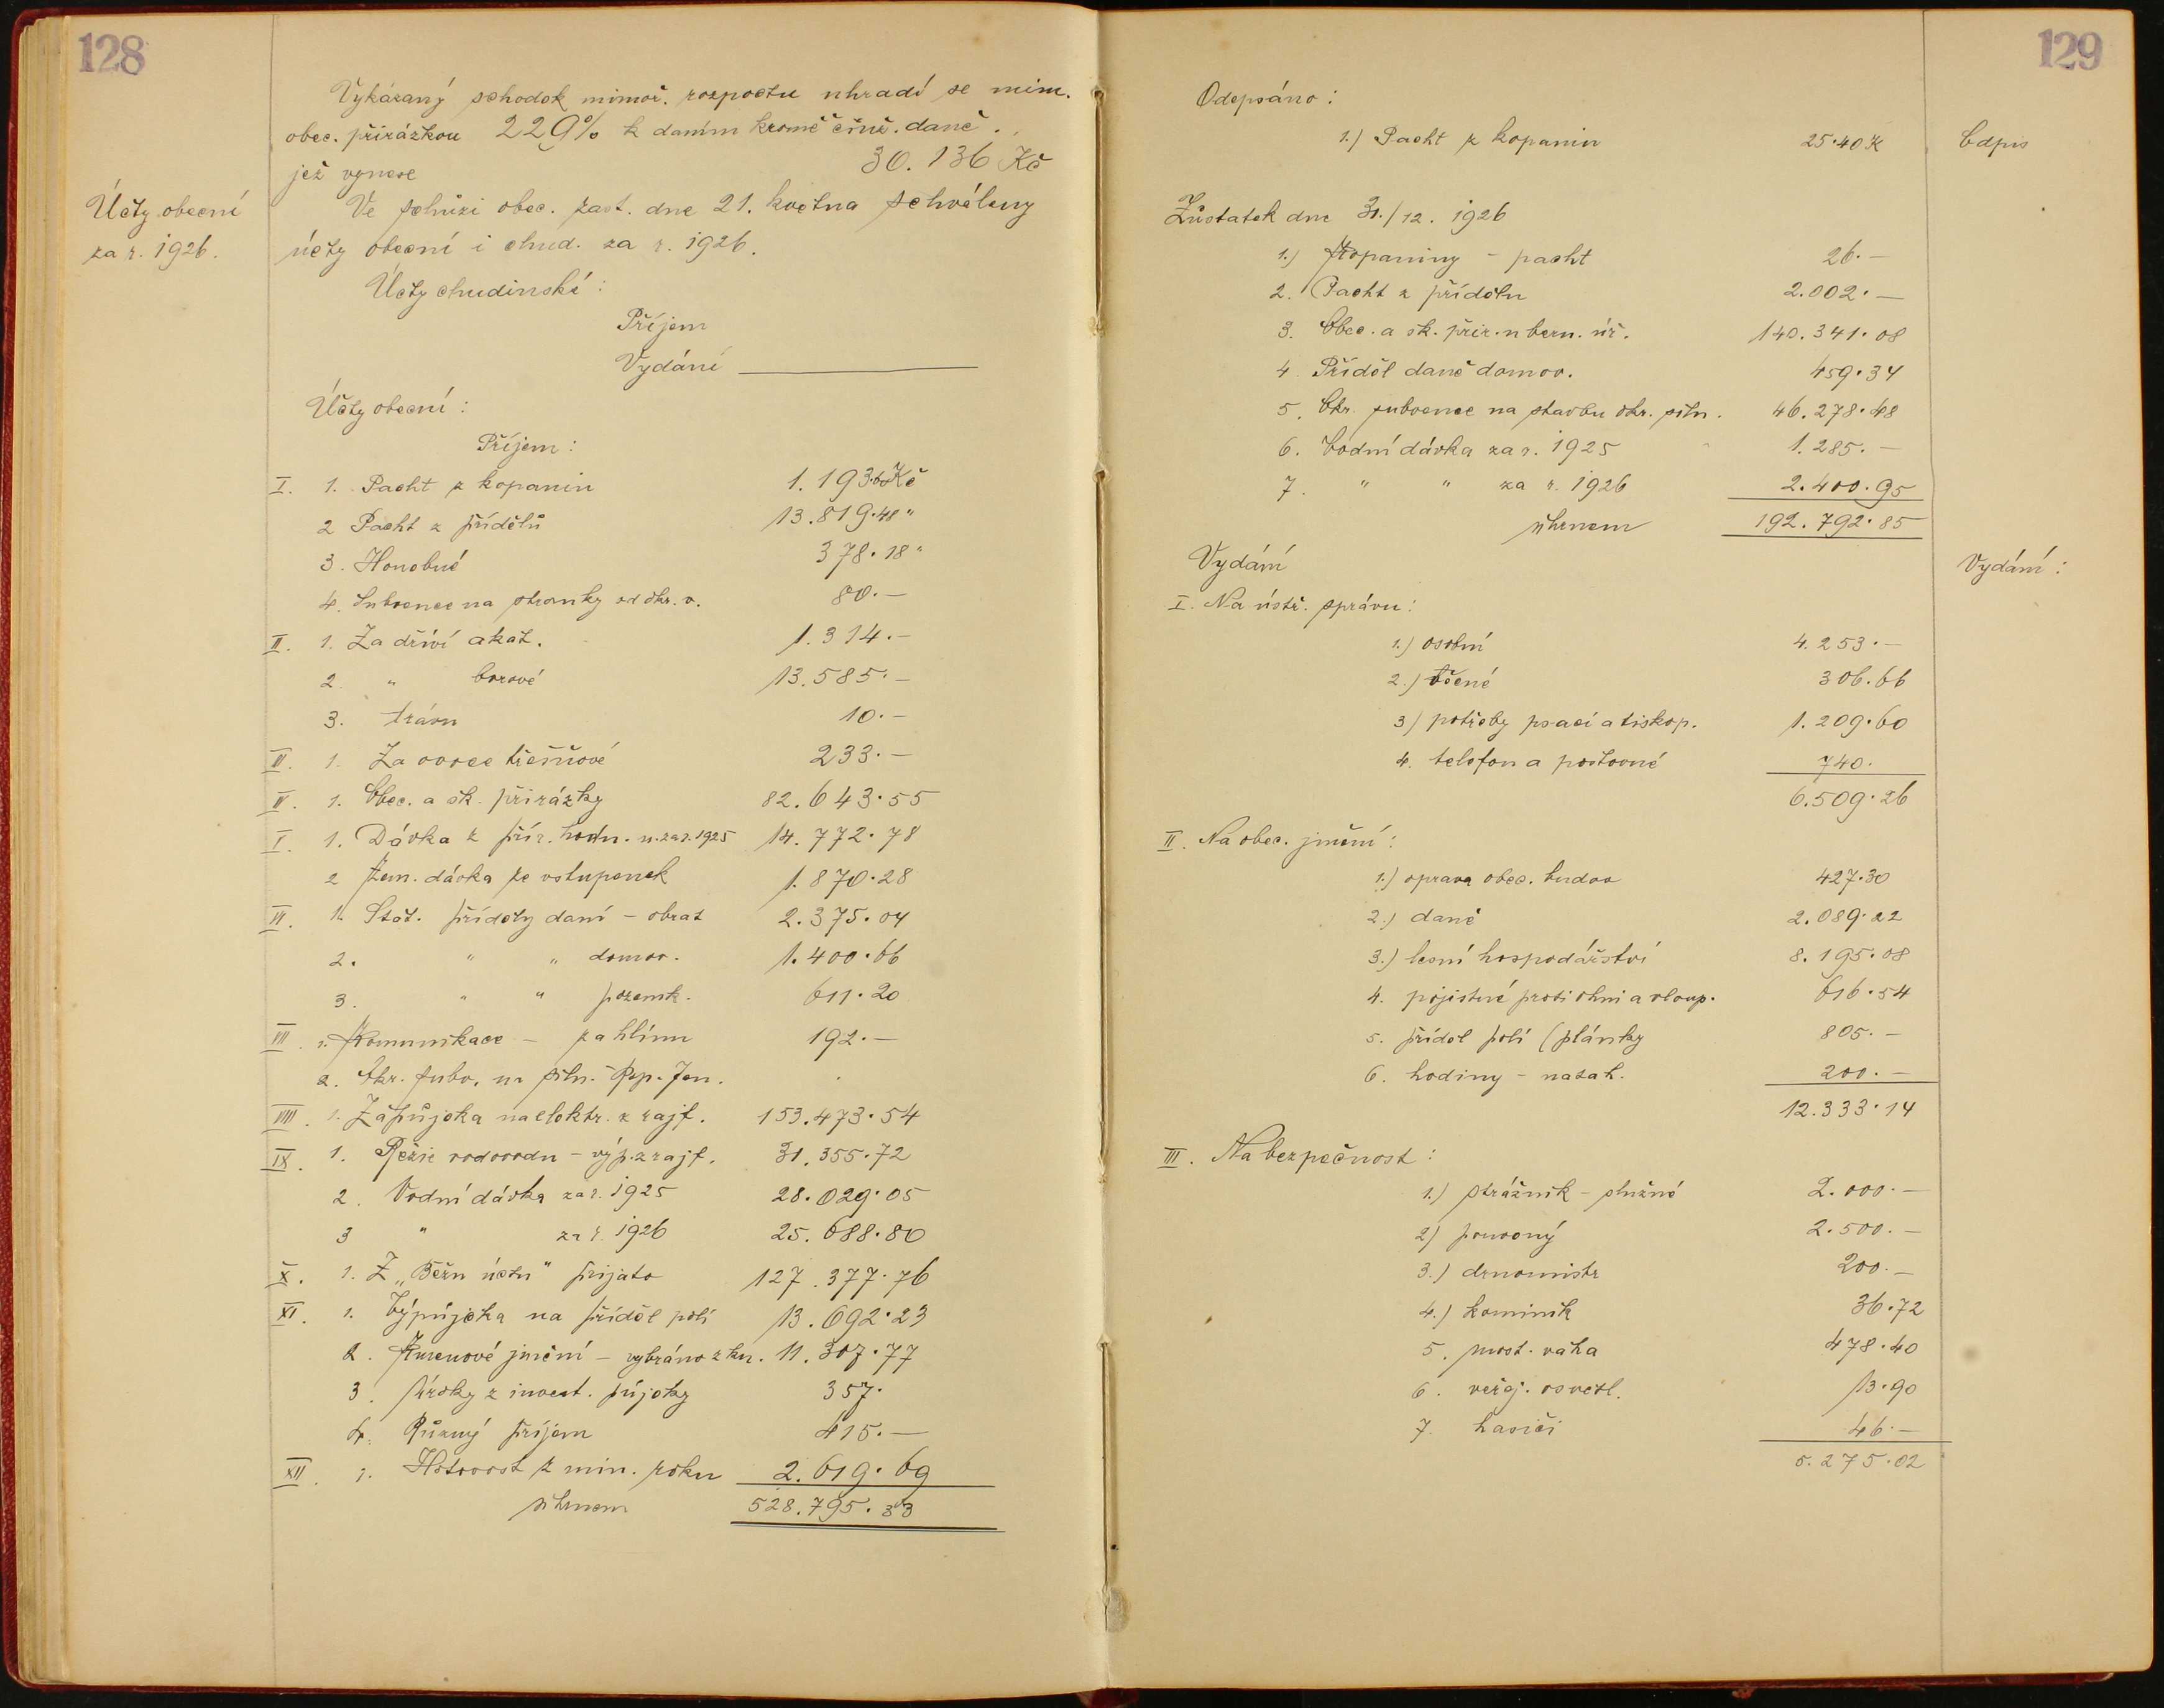 128
Vykázaný schodek mimoř. rozpočtu uhradí se mim.
obec. přirážkou 229% k daním kromě činž. daně.
jež vynese 30.136 Kč
Účty obecní
za r. 1926.
Ve schůzi obec. zast. dne 21. května schváleny
účty obecní i chud. za r. 1926.
Účty chudinské:
Příjem
Vydání
Účty obecní:
Příjem:
I. 1. Pacht z kopanin 1.193·60 Kč
2 Pacht z přídělů 13.819·48 "
3. Honebné 378·18 "
4. Subvence na stromky od okr. v. 80.—
II. 1. Za dříví akat. 1.314.—
2. " borové 13.585.—
3. trávu 10.—
III. 1. Za ovoce třešňové 233.—
IV. 1. Obec. a šk. přirážky 82.643·55
V. 1. Dávka z přír. hodn. n. za r. 1925 14.772·78
2 Zem. dávka ze vstupenek 1.870·28
VI. 1. Stát. příděly daní – obrat 2.375·04
2. " " domov. 1.400·66
3. " " pozemk. 611·20
VII. 1. Komunikace – za hlínu 192.—
2. Okr. subv. na siln. Jen.
VIII. 1. Zápůjčka na elektr. z rajf. 153.473·54
IX. 1. Režie vodovodu – výp. z rajf. 31.355·72
2. Vodní dávka za r. 1925 28.029·05
3 " za r. 1926 25.688·80
X. 1. Z „Běžn účtu" přijato 127.377·76
XI. 1. Výpůjčka na příděl polí 13.692·23
2. Kmenové jmění – vybráno z kn. 11.307·77
3. Úroky z invest. půjčky 357.
4. Různý příjem 415.—
XII. 1. Hotovost z min. roku 2.619·69
úhrnem 528.795·33
129
Odepsáno:
1.) Pacht z kopanin 25·40 K
Odpis
Zůstatek dne 31./12. 1926
1.) Kopaniny – pacht 26.—
2. Pacht z přídělu 2.002·—
3. Obec. a šk. přir. u bern. úř. 140.341·08
4. Příděl daně domov. 459·34
5. Okr. subvence na stavbu okr. siln. 46.278·48
6. Vodní dávka za r. 1925 1.285.—
7. " " za r. 1926 2.400·95
úhrnem 192.792·85
Vydání
Vydání:
I. Na ústř. správu:
1.) osobní 4.253·—
2.) věcné 306·66
3) potřeby psací a tiskop. 1.209·60
4. telefon a poštovné 740.
6.509·26
II. Na obec. jmění:
1.) oprava obec. budov 427·30
2.) daně 2.089·22
3.) lesní hospodářství 8.195·08
4. pojistné proti ohni a vloup. 616·54
5. příděl polí (plánky 805.—
6. hodiny – natah. 200.—
12.333·14
III. Na bezpečnost:
1.) strážník – služné 2.000.—
2) ponocný 2.500.—
3.) drnomistr 200.—
4.) kominík 36·72
5. most. váha 478·40
6. veřej. osvětl. 13·90
7. hasiči 46.—
5.275·02